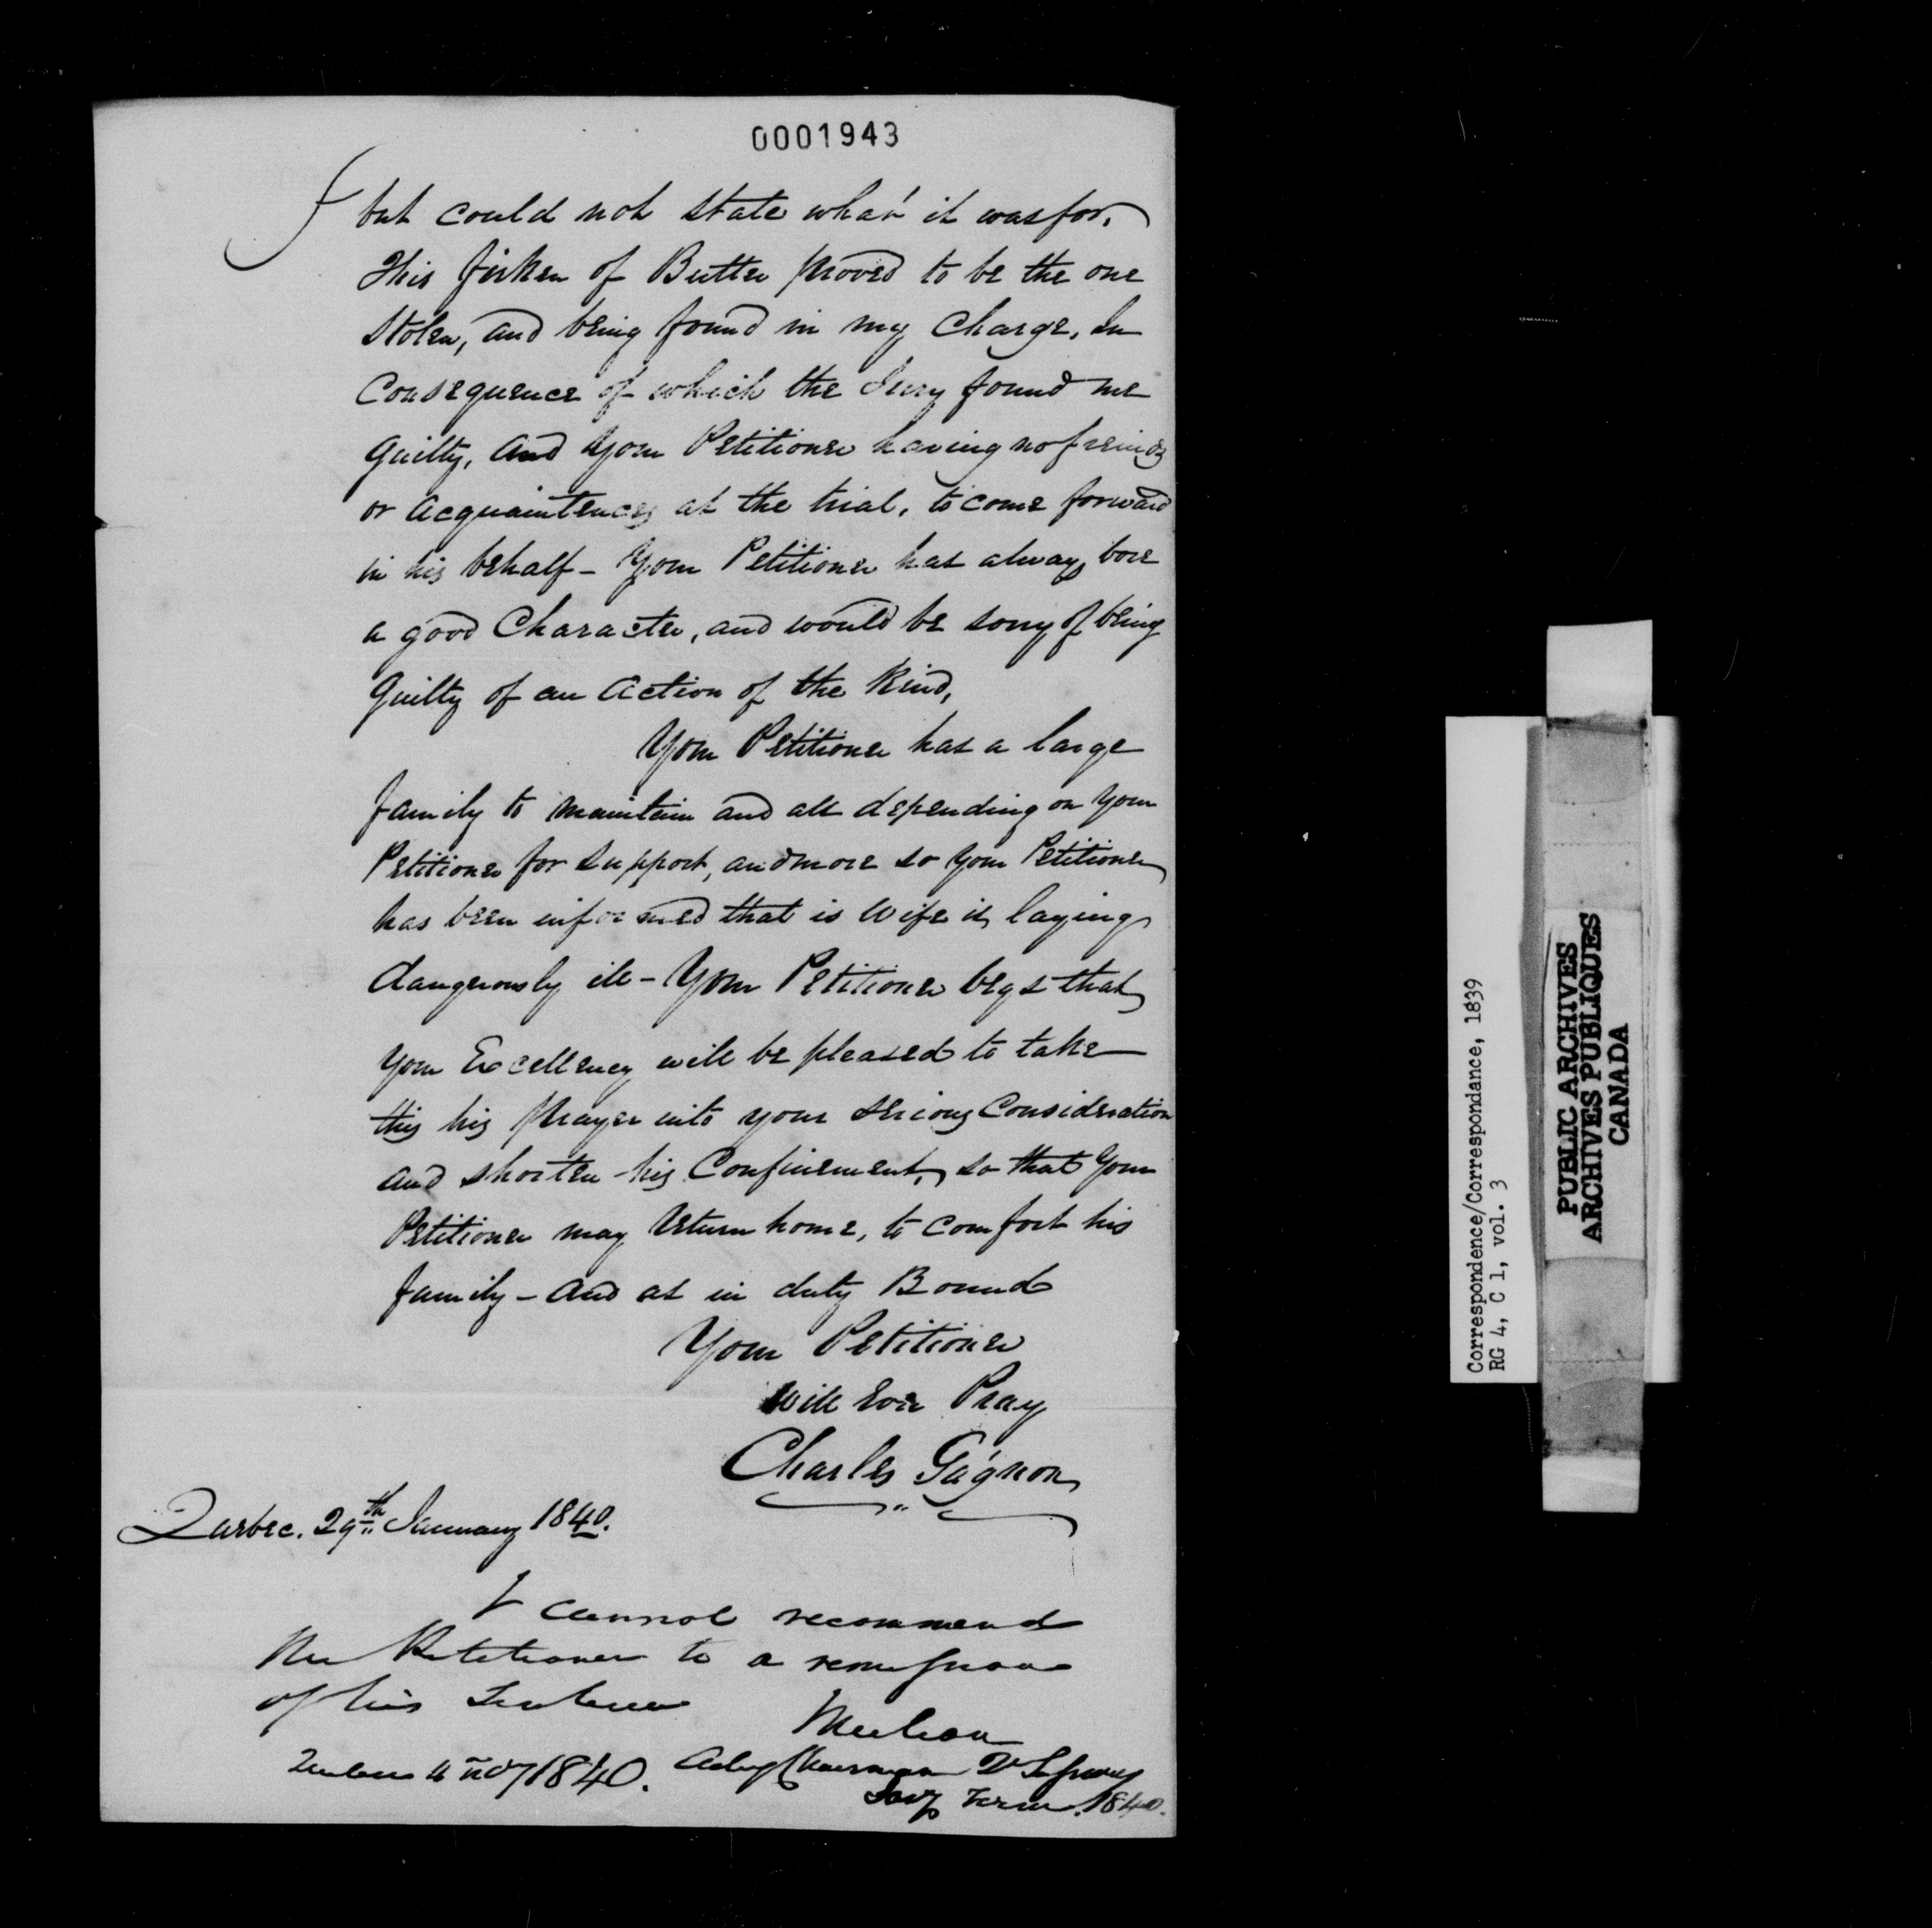 0001943
but could not state what it was for,
This firken of Butter proved to be the one
Stolen, and being found in my Charge, In
Consequence of which the Jury found me
Guilty, and Your Petitioner having no freinds
or Acquaintences at the trial, to come forward
in his behalf - Your Petitioner has always bore
a good Character, and would be sorry of being
Guilty of an Action of the Kind,
Your Petitioner has a large
family to maintain and all depending on Your
Petitioner for support, and more so Your Petitioner
has been informed that is Wife is laying
dangerously ill - Your Petitioner begs that
Your Excellency will be pleased to take
this his prayer into your serious Consideration
and shorten his Confinement, so that Your
Petitioner may return home, to comfort his
family - And as in duty Bound
Your Petitioner
Will Ever Pray
Charles Gagnon
Quebec. 29th January 1840.
I cannot recommend
the Petitioner to a remission
of his Sentence
1840. Chairman
Term. 1840.
Correspondence/Correspondance, 1839
RG 4, C 1, vol. 3
PUBLIC ARCHIVES
ARCHIVES PUBLIQUES
CANADA